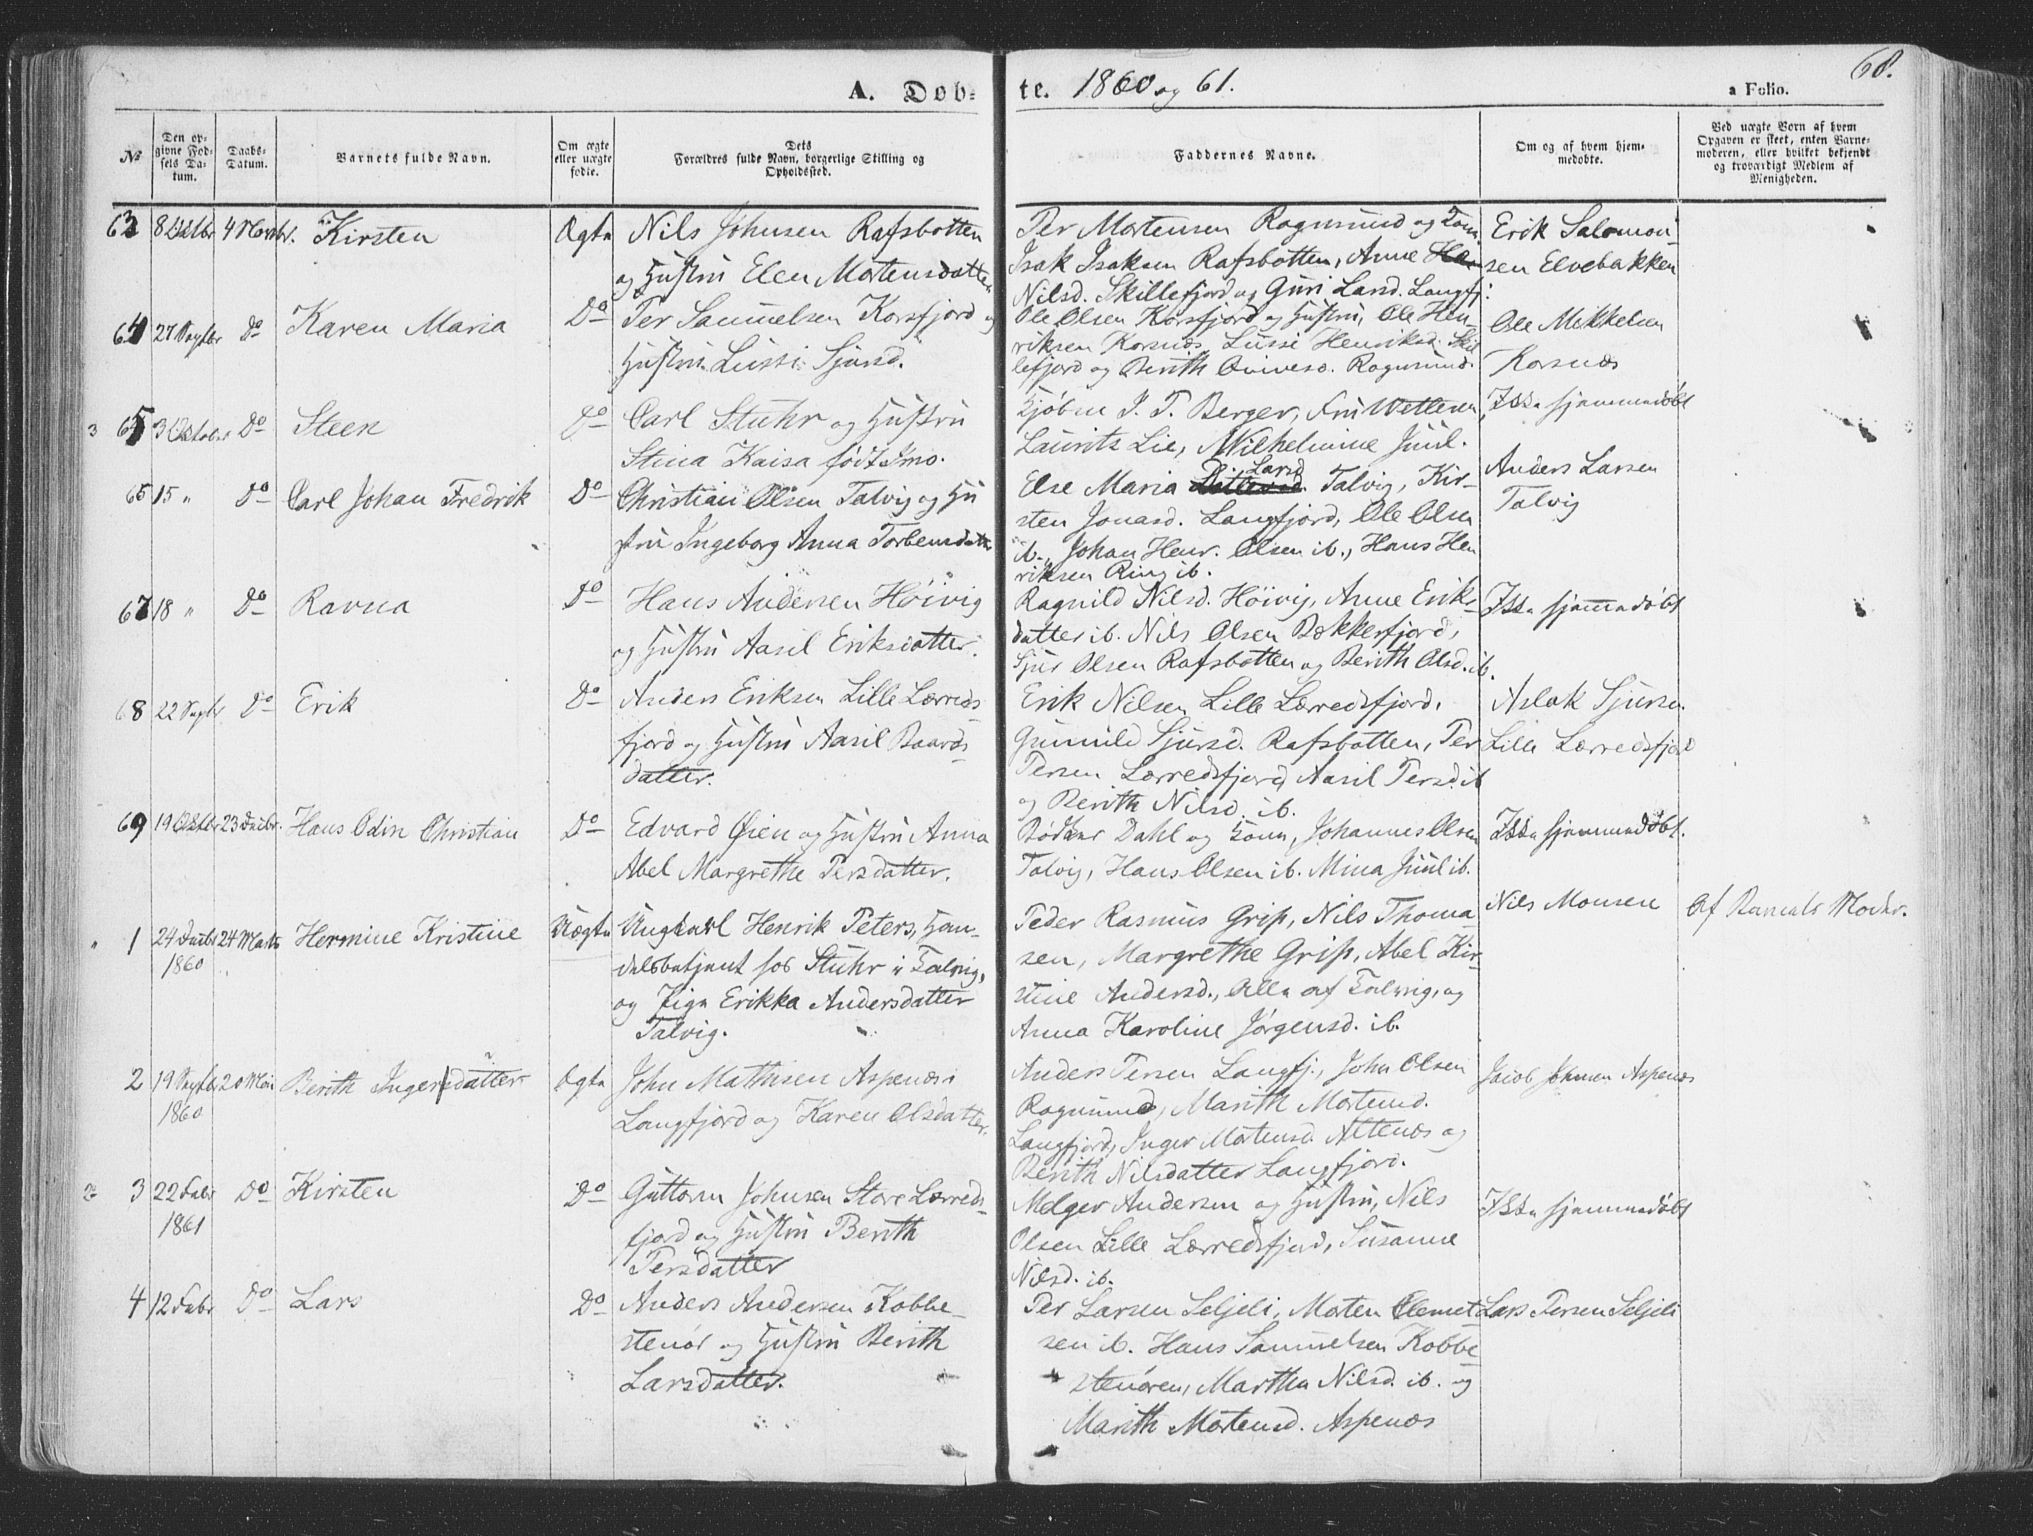 68.
A. Døb-
te. 1860 og 61.
a Folio.
No
Den op-
givne Fød-
sels Da-
tum.
Daabs-
Datum.
Barnets fulde Navn.
Om ægte
eller uægte
fødte.
Dets
Forældres fulde Navn, borgerlige Stilling og
Opholdssted.
Faddernes Navne.
Om og af hvem hjem-
medøbte.
Ved uægte Born af hvem
Opgaven er skeet, enten Barne-
moderen, eller hvilket bekjendt
og troværdigt Medlem af
Menigheden.
63 8 Oktbr 4 Novbr. Kirsten Ægte Nils Johnsen Rafsbotten
og Hustru Elen Mortensdatter
Per Mortensen Rognsund og Kone,
Isak Isaksen Rafsbotten, Anne
Nilsd. Skillefjord og Guri Larsd. Langfj.
Erik Salomon-
sen Elvebakken
64 27 Septbr Do Karen Maria Do Per Samuelsen Korsfjord og
Hustru Lussi Sjursd.
Ole Olsen Korsfjord og Hustru, Ole Hen-
riksen Korsnæs, Lussi Henriksd. Skil-
lefjord og Berith Rognsund.
Ole Mikkelsen
Korsnæs
3 65 3 Oktober Do Steen Do Carl Stuhr og Hustru
Stina Kaisa født Imo.
Kjøbm J. T. Berger, Fru Wetlesen,
Laurits Lie, Wilhelmine Juul.
Ikke hjemmedøbt
65 15 " Do Carl Johan Fredrik Do Christian Olsen Talvig og Hu
stru Ingeborg Anna Torbensdatter
Else Maria Larsd Talvig, Kir-
sten Jonasd. Langfjord, Ole Olsen
ib., Johan Henr. Olsen ib., Hans Hen
riksen Ring ib.
Anders Larsen
Talvig
67 18 " Do Ravna Do Hans Andersen Høivig
og Hustru Aasil Eriksdatter.
Ragnild Nilsd. Høivig, Anne Eriks-
datter ib. Nils Olsen Bekkerfjord,
Sjur Olsen Rafsbotten og Berith Olsd. ib.
Ikke hjemmedøbt
68 22 Septbr Do Erik Do Anders Eriksen Lille Lerreds-
fjord og Hustru Aasil Baards-
datter.
Erik Nilsen Lille Lerredsfjord,
Gunnild Sjursd. Rafsbotten, Per
Persen Lerredsfjord, Aasil Persd. ib
og Berith Nilsd. ib.
Aslak Sjursen
Lille Lerredsfjord
69 19 Oktbr 23 Decbr. Hans Odin Christian Do Edvard Øien og Hustru Anna
Abel Margrethe Persdatter.
Bødker Dahl og Kone, Johannes Olsen
Talvig, Hans Olsen ib. Mina Juul ib.
Ikke hjemmedøbt.
" 1 24 Decbr 24 Marts Hermine Kristine Uægte Ungkarl Henrik Peters, Han-
1860
delsbetjent hos Stuhr i Talvig,
og Pige Erikka Andersdatter
Talvig.
Peder Rasmus Grip, Nils Thoma-
sen, Margrethe Grip, Abel Kir-
stine Andersd., Alle af Talvig, og
Anna Karoline Jørgensd. ib.
Nils Monsen
Af Barnets Moder.
2 19 Septbr 20 Mai Berith Ingersdatter Ægte John Mathisen Aspenæs i
1860
Langfjord og Karen Olsdatter.
Anders Persen Langfj., John Olsen
Rognsund, Marith Mortensd.
Langfjord, Inger Mortensd. Altenæs og
Berith Nilsdatter Langfjord.
Jacob Johnsen Aspenæs
2 3 22 Febr Do Kirsten Do Guttorm Johnsen Store Lerreds-
1861
fjord og Hustru Berith
Persdatter
Melger Andersen og Hustru, Nils
Olsen Lille Lerredsfjord, Susanne
Nilsd. ib.
Ikke hjemmedøbt
4 12 Febr Do Lars Do Anders Andersen Kobbe-
stenør og Hustru Berith
Larsdatter.
Per Larsen Seljeli, Morten Clemet-
sen ib. Hans Samuelsen Kobbe
stenøren, Marthe Nilsd. ib. og
Marith Mortensd. Aspenæs
Lars Persen Seljeli